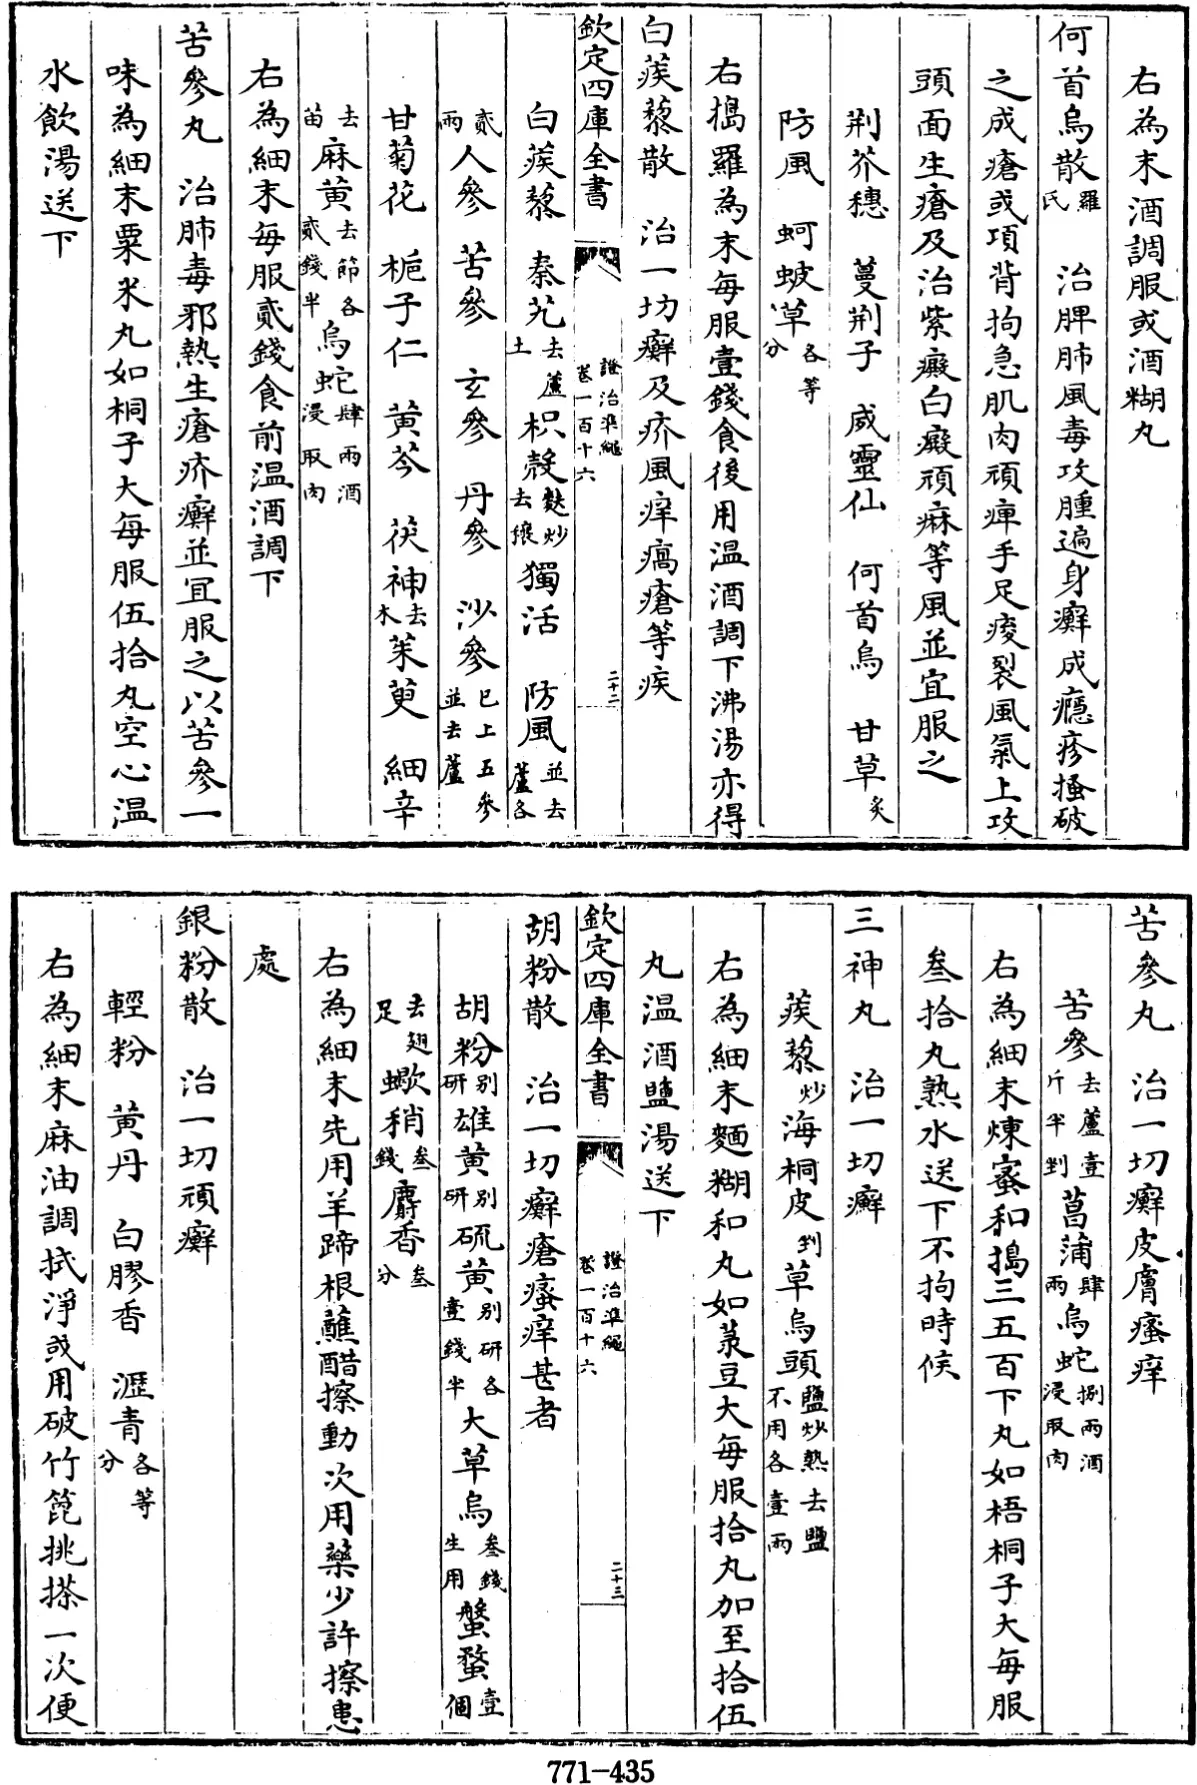 右為末酒調服或酒糊丸
何首烏散羅氏 治脾肺風毒攻腫遍身癬成癮疹搔破
之成瘡或項背拘急肌肉頑痺手足痠裂風氣上攻
頭面生瘡及治紫癜白癜頑痳等風並宜服之
荆芥穗 蔓荆子 威靈仙 何首烏 甘草炙
防風 蚵蚾草各等分
右搗羅為末每服壹錢食後用温酒調下沸湯亦得
白蒺藜散 治一切癬及疥風痒癘瘡等疾
欽定四庫全書 證治凖繩卷一百十六 二十二
白蒺藜 秦艽去蘆土 枳殼麩炒去穰 獨活 防風並去蘆各
貳兩 人參 苦參 玄參 丹參 沙參已上五參並去蘆
甘菊花 梔子仁 黄芩 茯神去木 茱萸 細辛
去苗 麻黄去節各貳錢半 烏蛇肆兩酒浸取肉
右為細末每服貳錢食前温酒調下
苦參丸 治肺毒邪熱生瘡疥癬並宜服之以苦參一
味為細末粟米丸如桐子大每服伍拾丸空心温
水飲湯送下
苦參丸 治一切癬皮膚瘙痒
苦參去蘆壹斤半剉 菖蒲肆兩 烏蛇捌兩酒浸取肉
右為細末煉蜜和搗三五百下丸如梧桐子大每服
叁拾丸熟水送下不拘時候
三神丸 治一切癬
蒺藜炒 海桐皮剉 草烏頭鹽炒熟去鹽不用各壹兩
右為細末麵糊和丸如菉豆大每服拾丸加至拾伍
丸温酒鹽湯送下
欽定四庫全書 證治凖繩卷一百十六 二十三
胡粉散 治一切癬瘡瘙痒甚者
胡粉别研 雄黄别研 硫黄别研各壹錢半 大草烏叁錢生用 螌蝥壹個
去翅足 蠍稍叁錢 麝香叁分
右為細末先用羊蹄根蘸醋擦動次用藥少許擦患
處
銀粉散 治一切頑癬
輕粉 黄丹 白膠香 瀝青各等分
右為細末麻油調拭淨或用破竹篦挑搽一次便
771-435